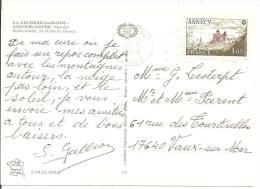 LA LECHERE-les-BAINS -
AIGUEBLANCHE (Savoie)
ANNECY
FRANCE 1,00
De ma cure où je
fais un repos complet
avec les montagnes
autour, la neige
pas loin, et le
soleil, je vous
envoie mes amitiés
à tous et de bons
baisers.
Mme G. Cesterpt
Mr et Mme Parent
61 rue des Tourterelles
17640 Vaux-sur-Mer